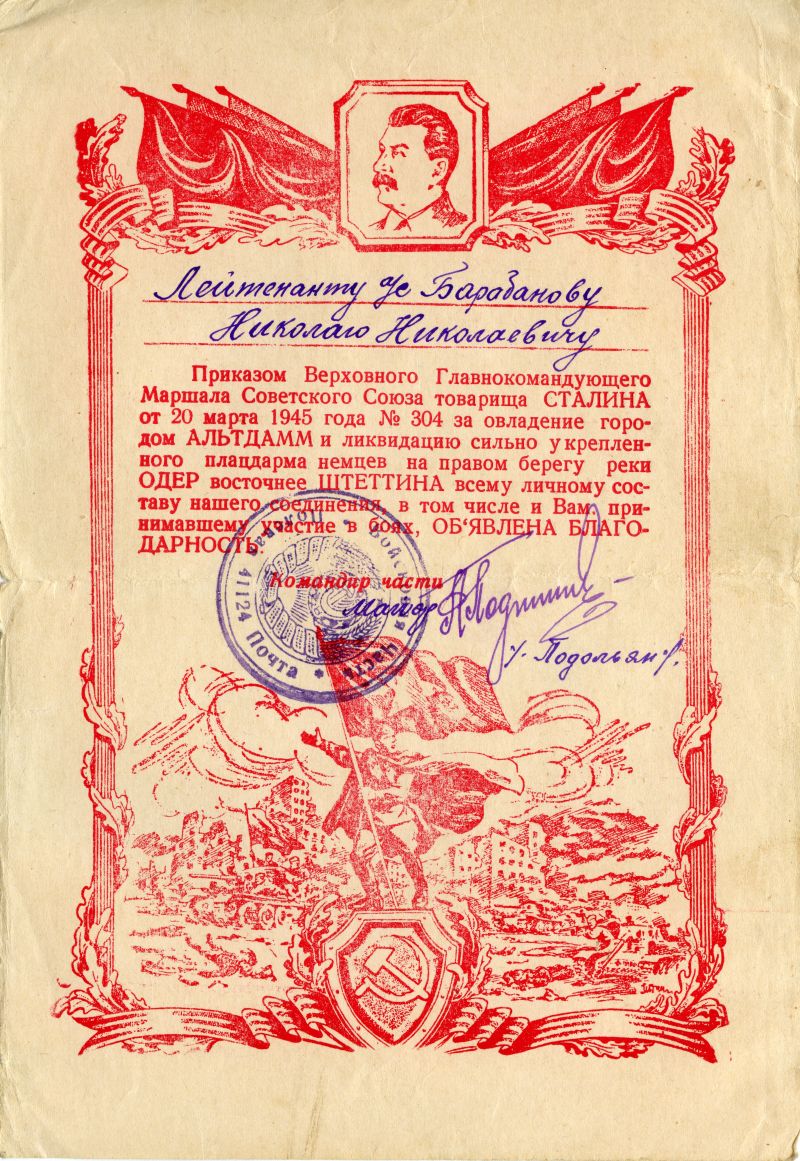 Лейтенанту а/с Барабанову
Николаю Николаевичу
Приказом Верховного Главнокомандующего
Маршала Советского Союза товарища СТАЛИНА
от 20 марта 1945 года № 304 за овладение горо-
дом АЛЬТДАММ и ликвидацию сильно укреплен-
ного плацдарма немцев на правом берегу реки
ОДЕР восточнее ШТЕТТИНА всему личному сос-
таву нашего соединения, в том числе и Вам, при-
нимавшему участие в боях, ОБ‘ЯВЛЕНА БЛАГО-
ДАРНОСТЬ
Командир части
Майор
Подольян
Войсковая часть * Полевая Почта 41124 *